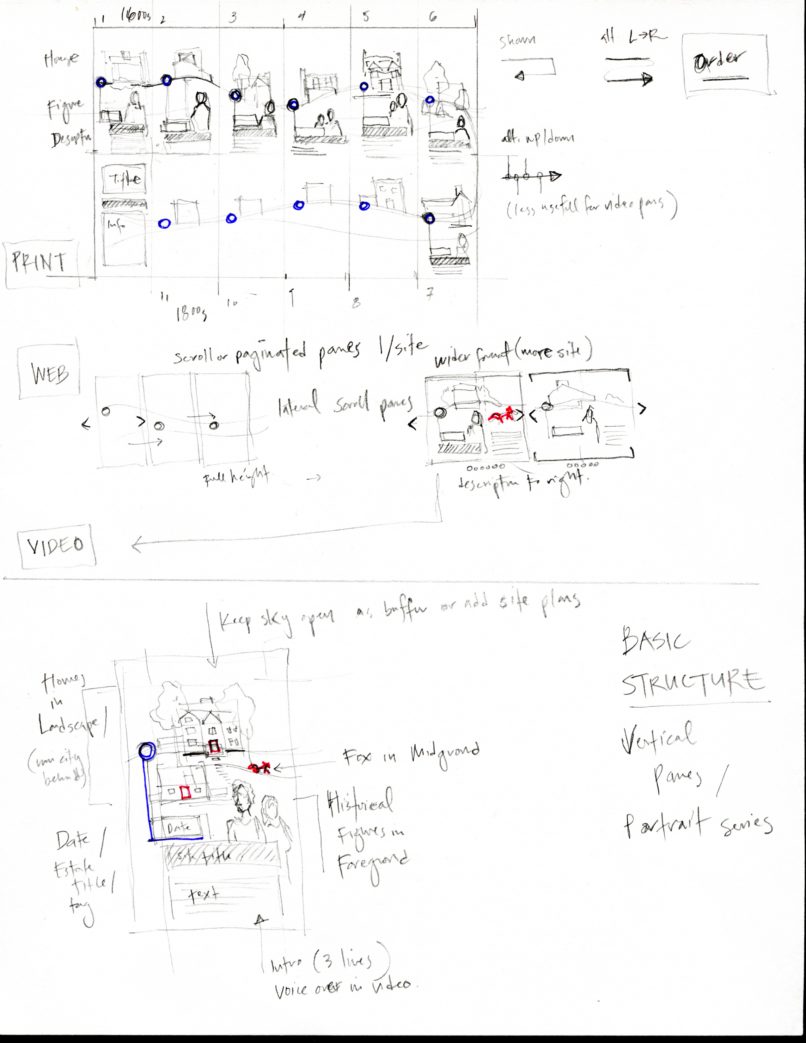 1 1600s 2 3 4 5 6
House
Figure
Title
Info
PRINT
11 10 9 8 7
1800s
shown
alt L→R
Order
alt. up/down
(less usefull for video pans)
WEB
scroll or paginated panes 1/site
wider format (more site)
lateral scroll panes
Full height
description to right.
VIDEO
Keep sky open as buffer or add site plans
Homes
in
Landscape/
city
behind)
Fox in Midground
Historical
Figures in
Foreground
Date
Date/
Estate
title/
tag
site title
text
Intro (3 lives)
voice over in video.
BASIC
STRUCTURE
Vertical
panes/
Portrait series